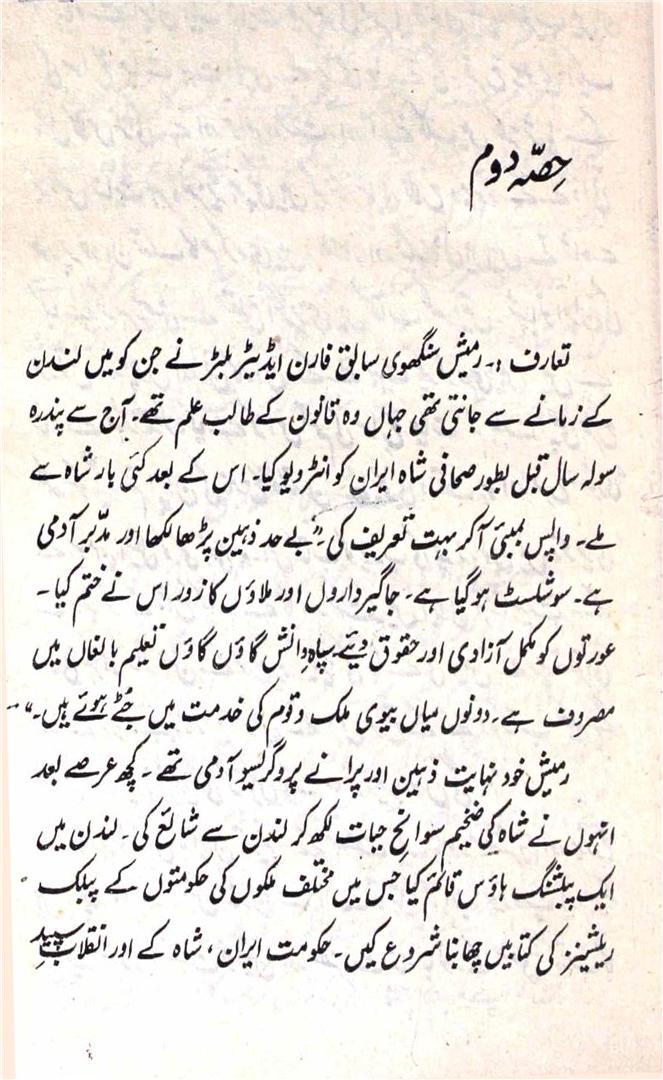 حصّہ دوم
تعارف :۔ رمیش سنگھوی سابق فارن ایڈیٹر بلٹز نے جن کو میں لندن
کے زمانے سے جانتی تھی جہاں وہ قانون کے طالب علم تھے۔ آج سے پندرہ
سولہ سال قبل بطور صحافی شاہ ایران کو انٹرویو کیا۔ اس کے بعد کئی بار شاہ سے
ملے۔ واپس بمبئی آکر بہت تعریف کی۔ "بے حد ذہین پڑھا لکھا اور مدّبر آدمی
ہے۔ سوشلسٹ ہو گیا ہے۔ جاگیرداروں اور ملاؤں کا زور اس نے ختم کیا۔
عورتوں کو مکمل آزادی اور حقوق دیئے سپاہِ دانش گاؤں گاؤں تعلیم بالغاں میں
مصروف ہے۔ دونوں میاں بیوی ملک و قوم کی خدمت میں جُٹے ہوئے ہیں۔"
رمیش خود نہایت ذہین اور پرانے پروگریسو آدمی تھے۔ کچھ عرصے بعد
انہوں نے شاہ کی ضخیم سوانح حیات لکھ کر لندن سے شائع کی۔ لندن میں
ایک پبلشنگ ہاؤس قائم کیا جس میں مختلف ملکوں کی حکومتوں کے پبلک
ریلیشنز کی کتابیں چھاپنا شروع کیں۔ حکومت ایران، شاہ کے اور انقلاب سپیدِ